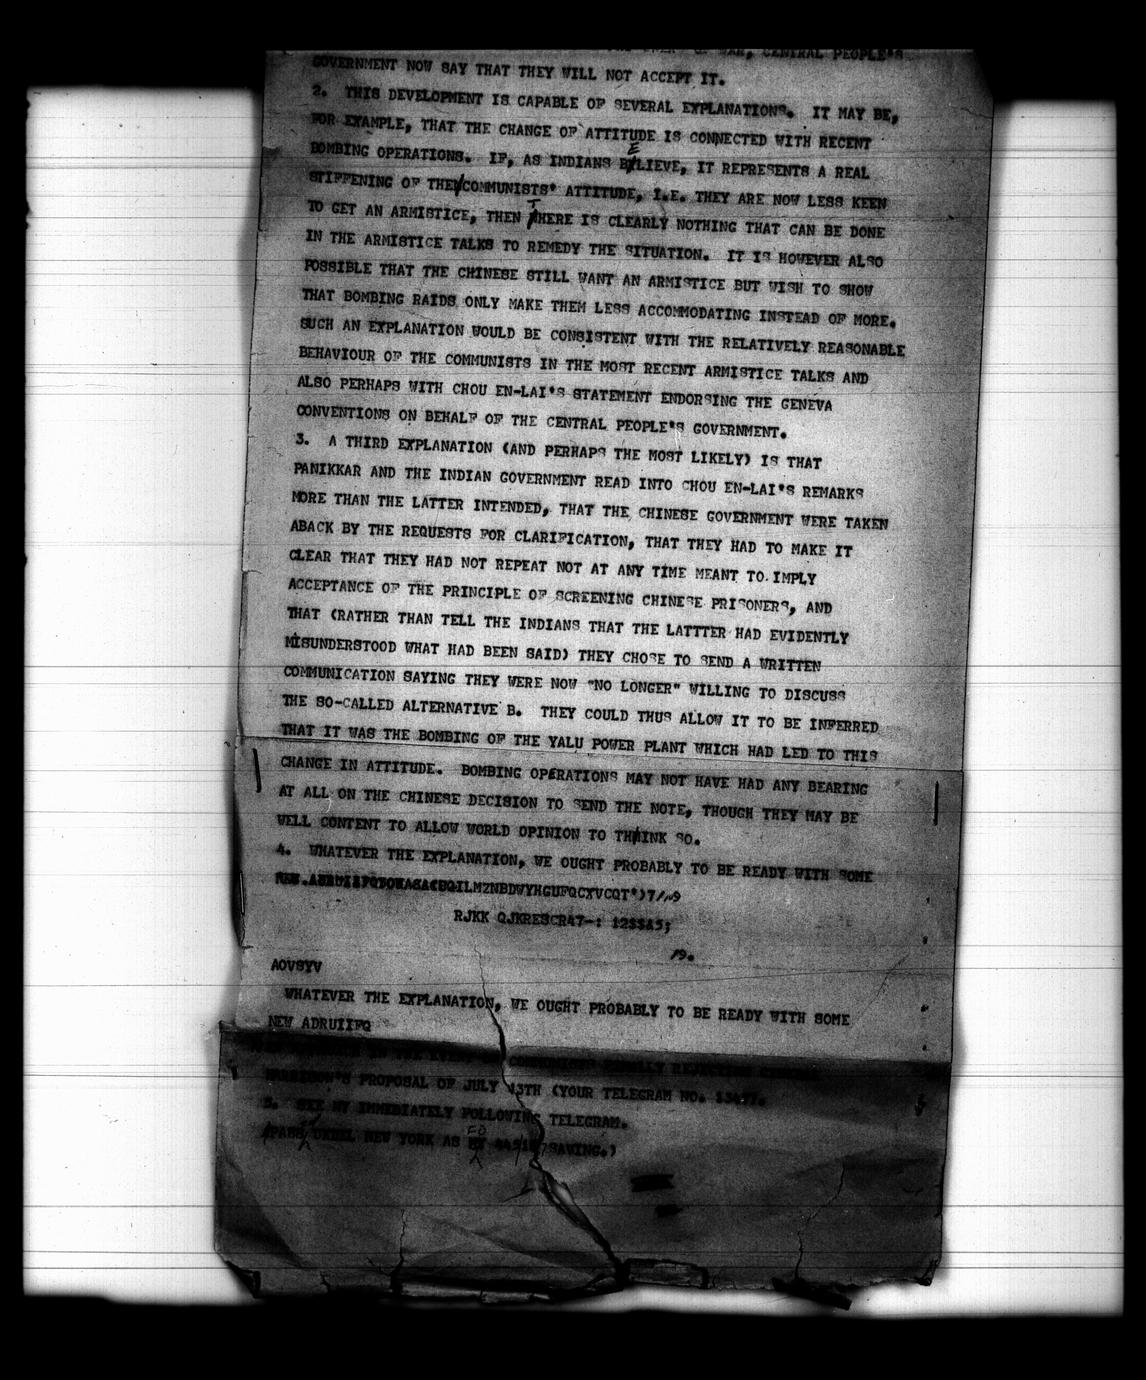 WAR, CENTRAL PEOPLE'S
GOVERNMENT NOW SAY THAT THEY WILL NOT ACCEPT IT.
2. THIS DEVELOPMENT IS CAPABLE OF SEVERAL EXPLANATIONS. IT MAY BE,
FOR EXAMPLE, THAT THE CHANGE OF ATTITUDE IS CONNECTED WITH RECENT
BOMBING OPERATIONS. IF, AS INDIANS BELIEVE, IT REPRESENTS A REAL
STIFFENING OF THE COMMUNISTS' ATTITUDE, I.E. THEY ARE NOW LESS KEEN
TO GET AN ARMISTICE, THEN THERE IS CLEARLY NOTHING THAT CAN BE DONE
IN THE ARMISTICE TALKS TO REMEDY THE SITUATION. IT IS HOWEVER ALSO
POSSIBLE THAT THE CHINESE STILL WANT AN ARMISTICE BUT WISH TO SHOW
THAT BOMBING RAIDS ONLY MAKE THEM LESS ACCOMMODATING INSTEAD OF MORE.
SUCH AN EXPLANATION WOULD BE CONSISTENT WITH THE RELATIVELY REASONABLE
BEHAVIOUR OF THE COMMUNISTS IN THE MOST RECENT ARMISTICE TALKS AND
ALSO PERHAPS WITH CHOU EN-LAI'S STATEMENT ENDORSING THE GENEVA
CONVENTIONS ON BEHALF OF THE CENTRAL PEOPLE'S GOVERNMENT.
3. A THIRD EXPLANATION (AND PERHAPS THE MOST LIKELY) IS THAT
PANIKKAR AND THE INDIAN GOVERNMENT READ INTO CHOU EN-LAI'S REMARKS
MORE THAN THE LATTER INTENDED, THAT THE CHINESE GOVERNMENT WERE TAKEN
ABACK BY THE REQUESTS FOR CLARIFICATION, THAT THEY HAD TO MAKE IT
CLEAR THAT THEY HAD NOT REPEAT NOT AT ANY TIME MEANT TO IMPLY
ACCEPTANCE OF THE PRINCIPLE OF SCREENING CHINESE PRISONERS, AND
THAT (RATHER THAN TELL THE INDIANS THAT THE LATTTER HAD EVIDENTLY
MISUNDERSTOOD WHAT HAD BEEN SAID) THEY CHOSE TO SEND A WRITTEN
COMMUNICATION SAYING THEY WERE NOW "NO LONGER" WILLING TO DISCUSS
THE SO-CALLED ALTERNATIVE B. THEY COULD THUS ALLOW IT TO BE INFERRED
THAT IT WAS THE BOMBING OF THE YALU POWER PLANT WHICH HAD LED TO THIS
CHANGE IN ATTITUDE. BOMBING OPERATIONS MAY NOT HAVE HAD ANY BEARING
AT ALL ON THE CHINESE DECISION TO SEND THE NOTE, THOUGH THEY MAY BE
WELL CONTENT TO ALLOW WORLD OPINION TO THINK SO.
4. WHATEVER THE EXPLANATION, WE OUGHT PROBABLY TO BE READY WITH SOME
RJKK QJKRESCR47-: 12$$&5;
19.
AOVSYV
WHATEVER THE EXPLANATION, WE OUGHT PROBABLY TO BE READY WITH SOME
NEW ADRUIIFQ
IN THE EVENT FINALLY REJECTING GENERAL
HARRISON'S PROPOSAL OF JULY 13TH (YOUR TELEGRAM NO.
5. SEE MY IMMEDIATELY FOLLOWING TELEGRAM.
NEW YORK AS FO SAVING.)